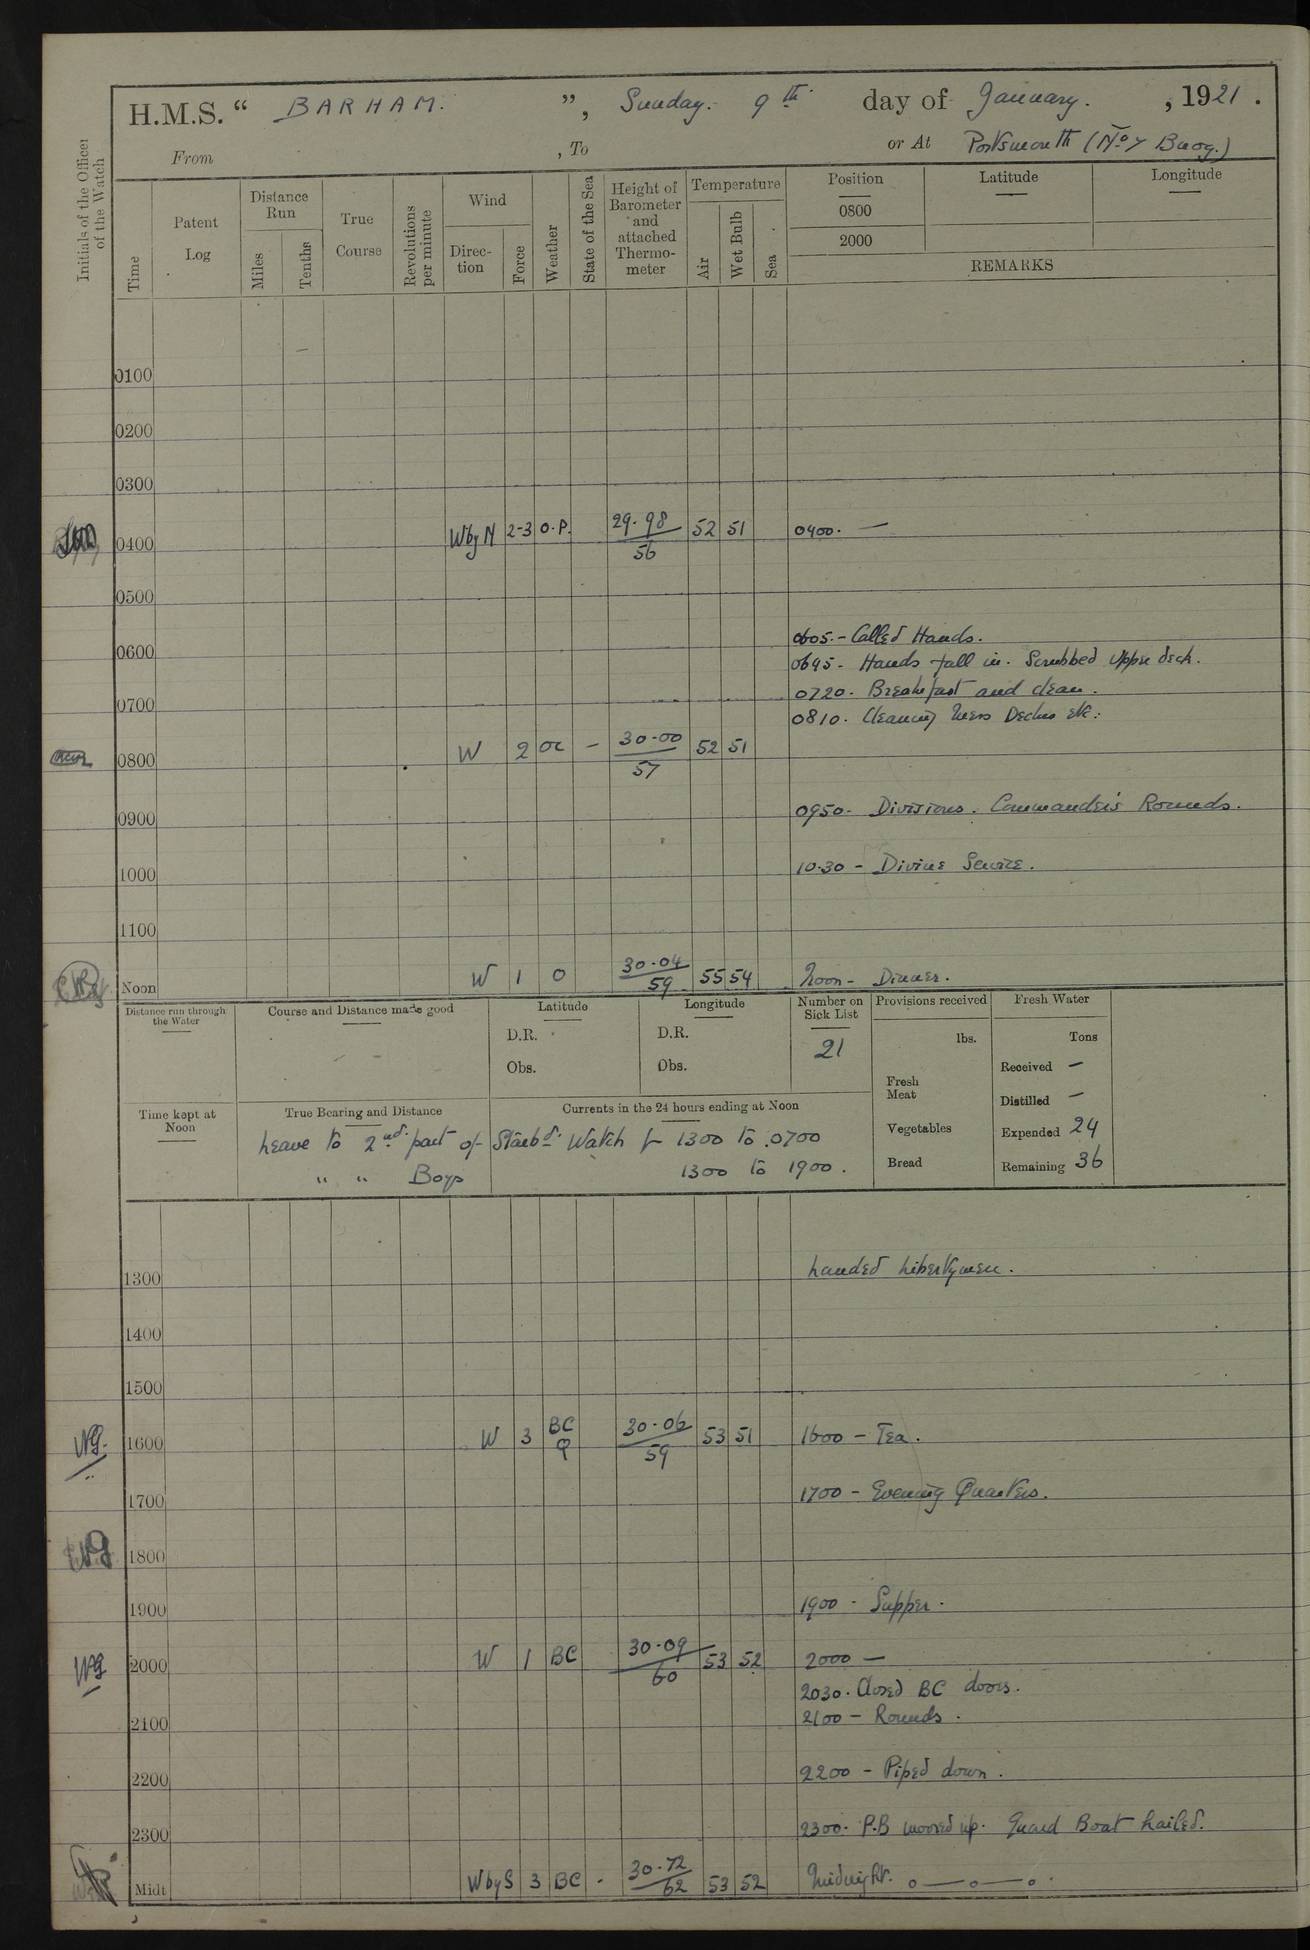 H.M.S. “ BARHAM. ”, Sunday. 9th. day of January. , 1921.
From , To or At Portsmouth (No 7 Buoy.)
Initials of the Officer of the Watch
Time
Patent Log
Distance Run
Miles
Tenths
True Course
Revolutions per minute
Wind
Direction
Force
Weather
State of the Sea
Height of Barometer and attached Thermometer
Temperature
Air
Wet Bulb
Sea
Position
0800
2000
Latitude
Longitude
REMARKS
0100
0200
0300
0400 W by N 2-3 O.P. 29.98 56 52 51 0400. —
0500
0605. - Called Hands.
0600
0645 - Hands fall in. Scrubbed upper deck.
0720. Breakfast and clean.
0700
0810. Cleaning Mess Decks etc.
0800 W 2 oc - 30.00 57 52 51
0950. Divisions. Commander's Rounds.
0900
1000 10.30 - Divine Service.
1100
Noon W 1 O 30.04 59 55 54 Noon - Dinner.
Distance run through the Water
Course and Distance made good
Latitude
D.R.
Obs.
Longitude
D.R.
Obs.
Number on Sick List
21
Provisions received
lbs.
Fresh Meat
Vegetables
Bread
Fresh Water
Tons
Received —
Distilled —
Expended 24
Remaining 36
Time kept at Noon
True Bearing and Distance
Currents in the 24 hours ending at Noon
Leave to 2nd. part of Starbd. Watch fr 1300 to 0700
" " Boys 1300 to 1900.
1300 Landed Libertymen.
1400
1500
1600 W 3 BC Q 30.06 59 53 51 1600 - Tea.
1700 1700 - Evening Quarters.
1800
1900 1900 - Supper.
2000 W 1 BC 30.09 60 53 52 2000 —
2030. Closed BC doors.
2100 2100 - Rounds.
2200 2200 - Piped down.
2300 2300. P.B moored up. Guard Boat hailed.
Midt W by S 3 BC - 30.12 62 53 52 Midnight. o—o—o.